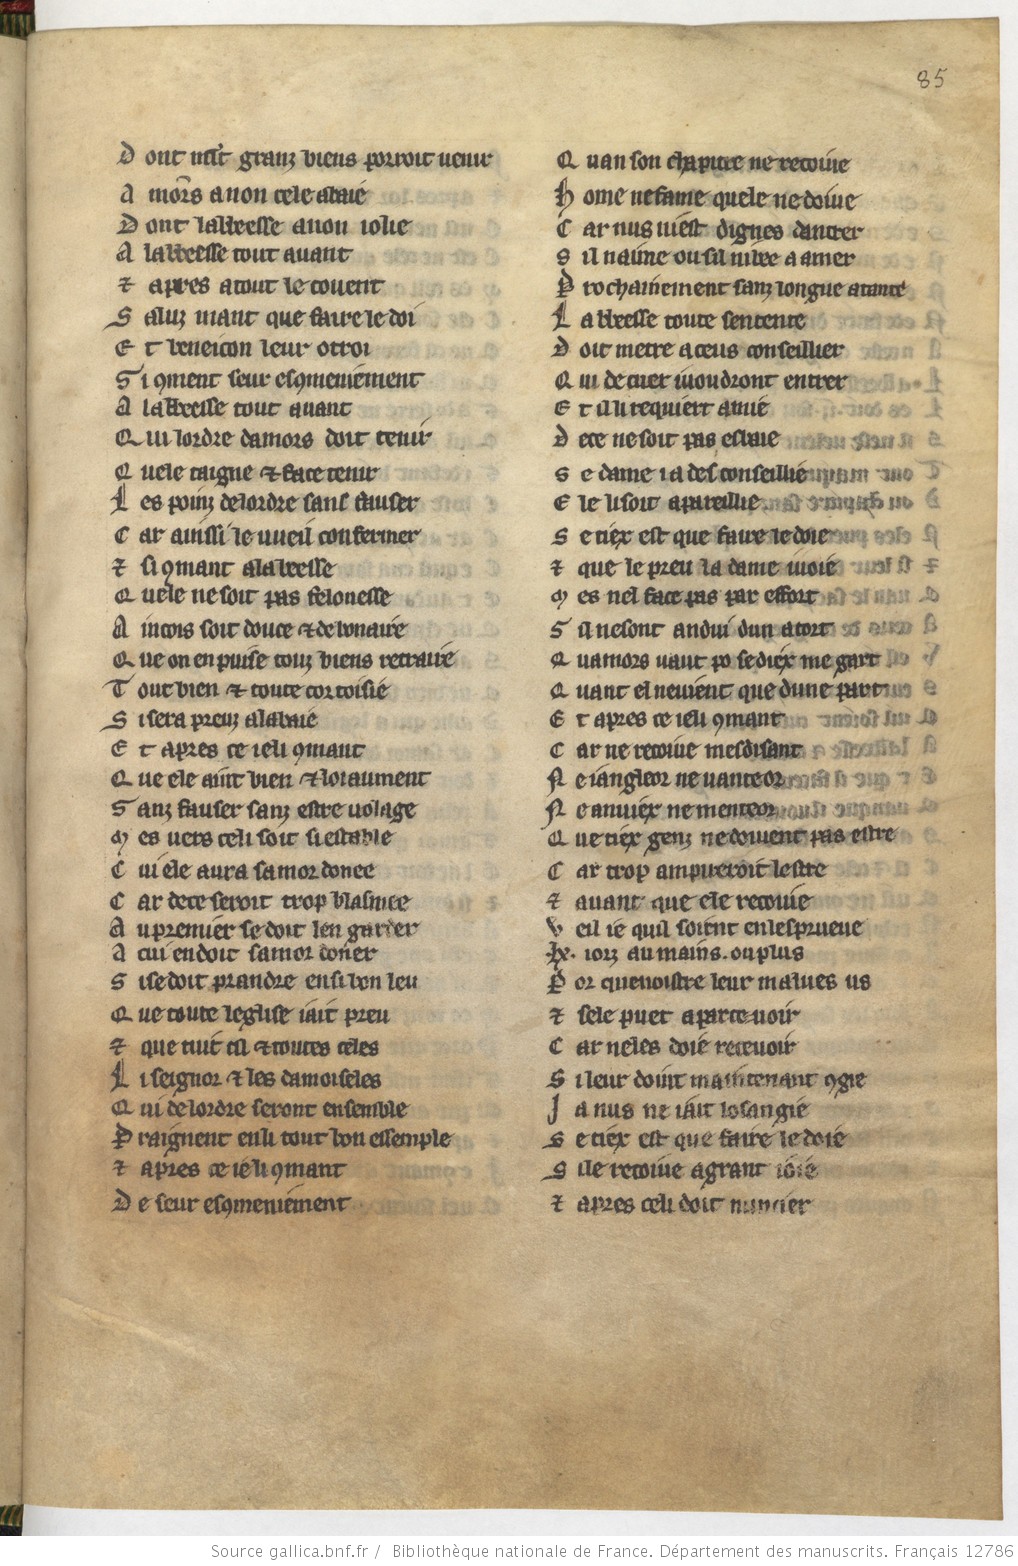 85
D ont mlt granz biens porroit uenir
A mors a non cele abaie
D ont labbeesse a non iolie
A labbeesse tout auant
⁊ apres a tout le couent
S aluz mant que faire le doi
E t beneicon leur otroi
S i ꝯment seur esꝯmeniement
A labbeesse tout auant
Q ui lordre damors doit tenir
Q uele taigne ⁊ face tenir
L es poinz de lordre sans fauser
C ar ainssi le uueil confermer
⁊ si ꝯmant a labeesse
Q uele ne soit pas felonesse
A incois soit douce ⁊ debonaire
Q ue on en puise touz biens retraire
T out bien ⁊ toute cortoisie
S i sera preuz a labaie
E t apres ce ie li ꝯmant
Q ue ele aint bien ⁊ loiaument
S anz fauser sanz estre uolage
M es uers celi soit si estable
C ui ele aura samor donee
C ar de ce seroit trop blasmee
A u premier se doit len garder
A cui en doit samor doner
S i se doit prandre en si bon leu
Q ue toute leglise iait preu
⁊ que tuit cil ⁊ toutes celes
L i seignor ⁊ les damoiseles
Q ui de lordre seront ensemble
P raignent en li tout bon essemple
⁊ apres ce ie li ꝯmant
D e seur esꝯmeniement
Q uan son chapitre ne recoiue
H ome ne fame quele ne doiue
C ar nus niest dignes dantrer
S il naime ou sil nibee a amer
P rochainement sanz longue atante
L abbeesse toute sentente
D oit metre a ceus conseillier
Q ui de cuer i uoudront entrer
E t cil i requiert amie
D e ce ne soit pas esbaie
S e dame i a desconseillie
E le li soit apareillie
S e tiex est que faire le doie
⁊ que le preu la dame i uoie
M es nel face pas par effort
S il ne sont andui dun acort
Q uamors uaut po se diex me gart
Q uant el ne uient que dune part
E t apres ce ie li ꝯmant
C ar ne recoiue mesdisant
N e iangleor ne uanteor
N e anuiex ne menteor
Q ue tiex genz ne doiuent pas estre
C ar trop ampireroit lestre
⁊ auant que ele recoiue
V eil ie quil soient en lesprueue
.IX. iorz au mains. ou plus
P or quenoistre leur malues us
⁊ sele puet aparceuoir
C ar ne les doie receuoir
S i leur doint maintenant ꝯgie
J a nus ne iait losangie
S e tiex est que faire le doie
S i le recoiue a grant ioie
⁊ apres celi doit nuncier
Source gallica.bnf.fr / Bibliothèque nationale de France. Département des manuscrits. Français 12786